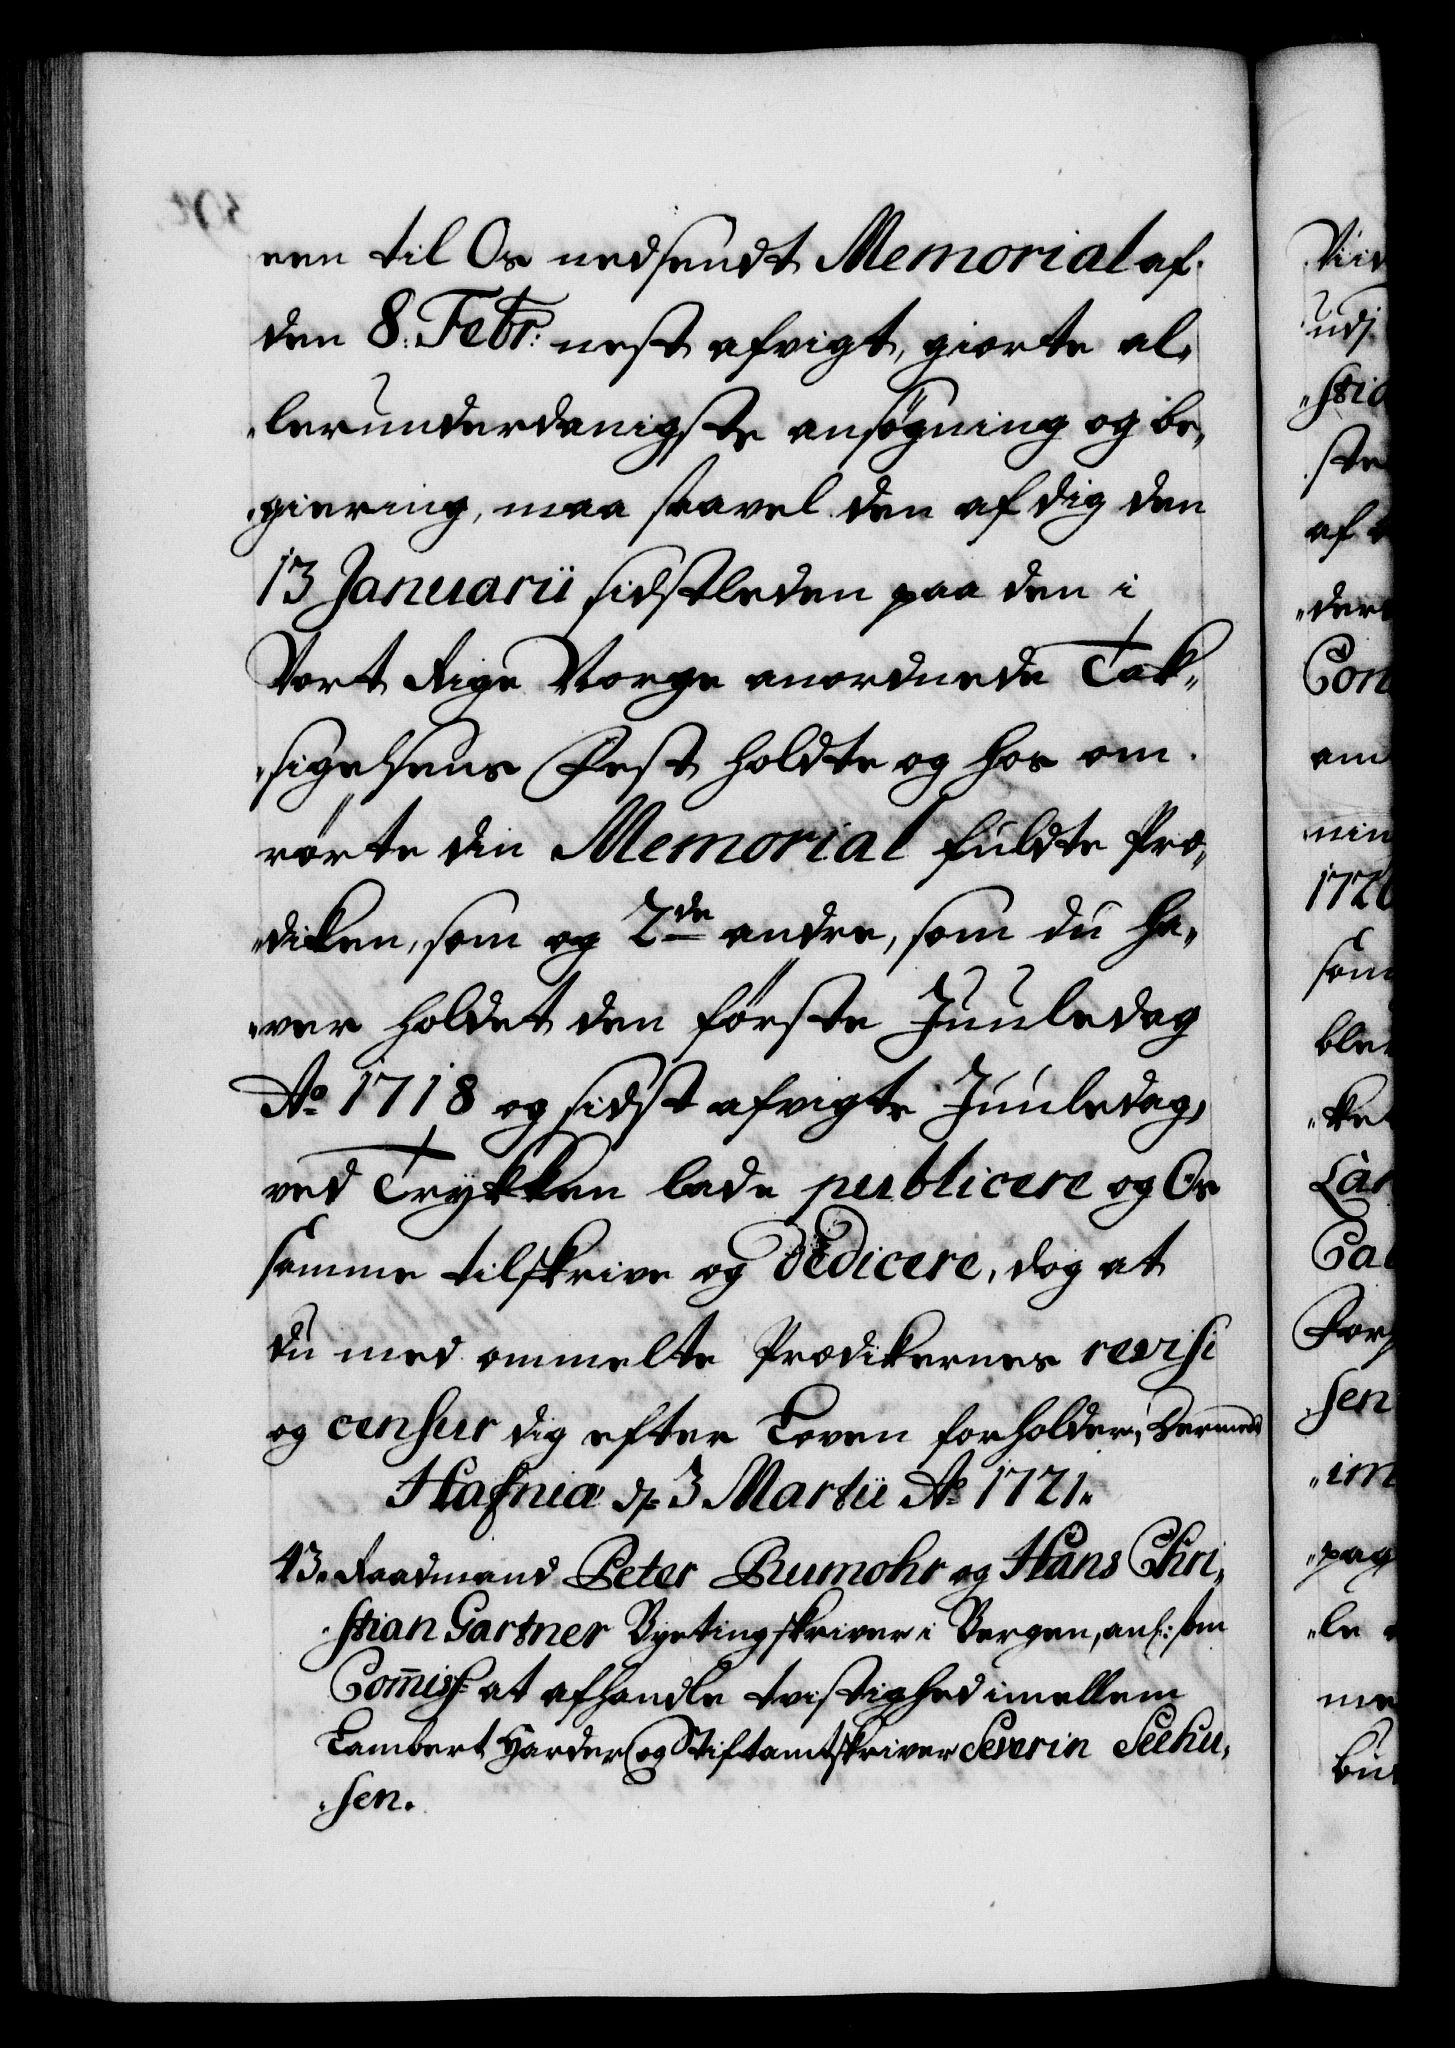 een til Os nedsendt Memorial af
den 8. Febr: nest afvigt, giorte al„
„lerunderdanigste ansøgning og be„
„giering, maa saavel den af dig den
13 Januarii sidstleden paa den i
Vort Rige Norge anordnede Tak„
„sigelsens Fest holdte og hos om„
rørte din Memorial fuldte Præ„
„diken, som og 2de andre, som du ha„
„ver holdet den første Juuledag
Ao 1718 og sidst afvigte Juuledag,
ved Trykken lade publicere og Os
samme tilskrive og dedicere, dog at
du med ommelte Prædikernes revisi
og censur dig efter Loven forholder, Dermed
Hafniæ d. 3 Martii Ao 1721.
43. Raadmand Peter Rumohr og Hans Chri„
„stian Gartner Byetingskriver i Bergen, anl: som
Com̄iss: at afhandle tvistighed imellem
Lambert Harder og Stiftamtskriver Severin Seehu„
„sen.